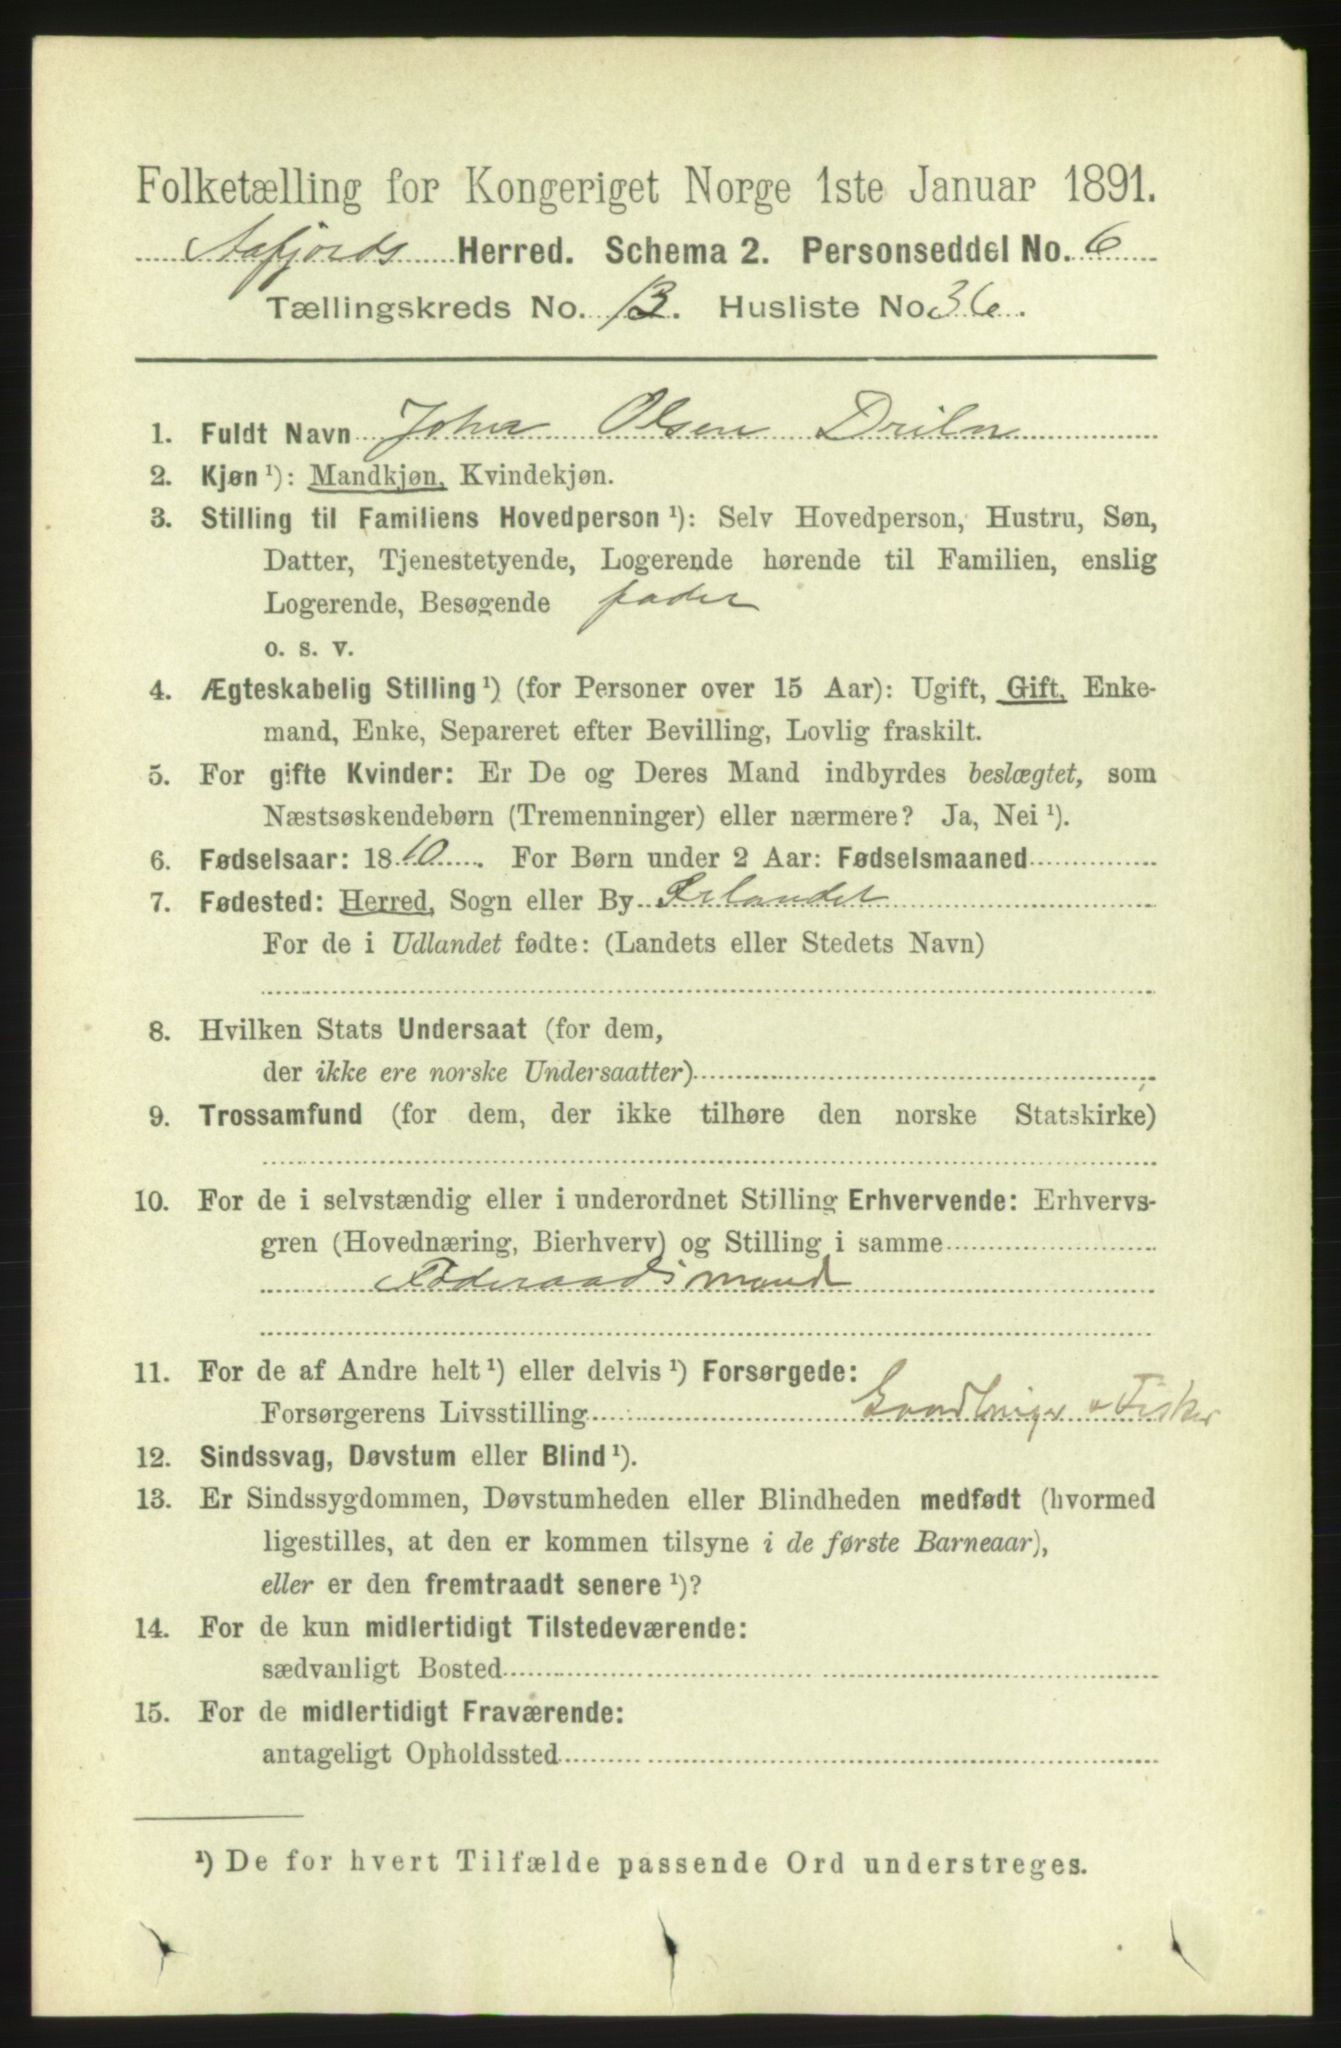 Folketælling for Kongeriget Norge 1ste Januar 1891.
Aafjords Herred. Schema 2. Personseddel No. 6
Tællingskreds No. 13. Husliste No 36.
1. Fuldt Navn Johan Olsen
2. Kjøn ¹): Mandkjøn, Kvindekjøn.
3. Stilling til Familiens Hovedperson ¹): Selv Hovedperson, Hustru, Søn,
Datter, Tjenestetyende, Logerende hørende til Familien, enslig
Logerende, Besøgende fader
o. s. v.
4. Ægteskabelig Stilling ¹) (for Personer over 15 Aar): Ugift, Gift, Enke-
mand, Enke, Separeret efter Bevilling, Lovlig fraskilt.
5. For gifte Kvinder: Er De og Deres Mand indbyrdes beslægtet, som
Næstsøskendebørn (Tremenninger) eller nærmere? Ja, Nei ¹).
6. Fødselsaar: 1810. For Børn under 2 Aar: Fødselsmaaned
7. Fødested: Herred, Sogn eller By Ørlandet
For de i Udlandet fødte: (Landets eller Stedets Navn)
8. Hvilken Stats Undersaat (for dem,
der ikke ere norske Undersaatter)
9. Trossamfund (for dem, der ikke tilhøre den norske Statskirke)
10. For de i selvstændig eller i underordnet Stilling Erhvervende: Erhvervs-
gren (Hovednæring, Bierhverv) og Stilling i samme
Føderaadsmand
11. For de af Andre helt ¹) eller delvis ¹) Forsørgede:
Forsørgerens Livsstilling Gaardbruger & Fisker
12. Sindssvag, Døvstum eller Blind ¹).
13. Er Sindssygdommen, Døvstumheden eller Blindheden medfødt (hvormed
ligestilles, at den er kommen tilsyne i de første Barneaar),
eller er den fremtraadt senere ¹)?
14. For de kun midlertidigt Tilstedeværende:
sædvanligt Bosted
15. For de midlertidigt Fraværende:
antageligt Opholdssted
¹) De for hvert Tilfælde passende Ord understreges.